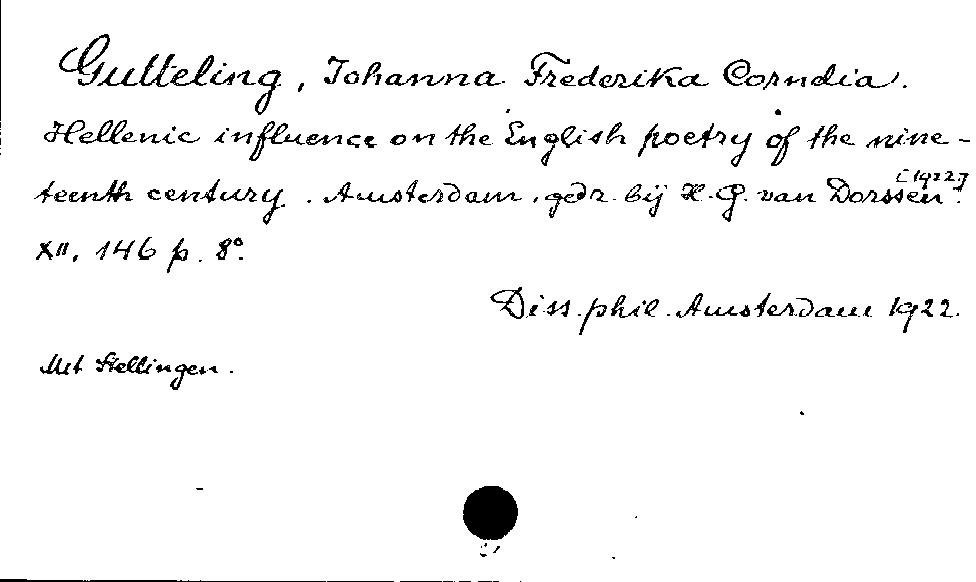 Gutteling, Johanna Frederika Cornelia.
Hellenic influence on the English poetry of the nine-
teenth century. Amsterdam, gedr. bij H. G. van Dorssen. [1922]
XII, 146 p. 8°.
Diss. phil. Amsterdam 1922.
Met Stellingen.